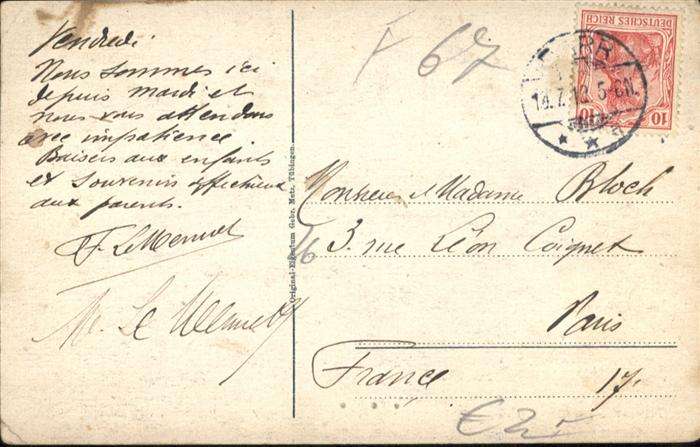 Vendredi
Nous sommes ici
depuis mardi et
nous vous attendons
avec impatience.
Baisers aux enfants
et souvenirs affectueux
aux parents.
F. Le Mennet
M. Le Mennet
F 67
Original-Eigentum Gebr. Metz, Tübingen.
DEUTSCHES REICH
10 10
Monsieur et Madame Bloch
16
3. rue Léon Coignet
Paris
France 17.
€ 2